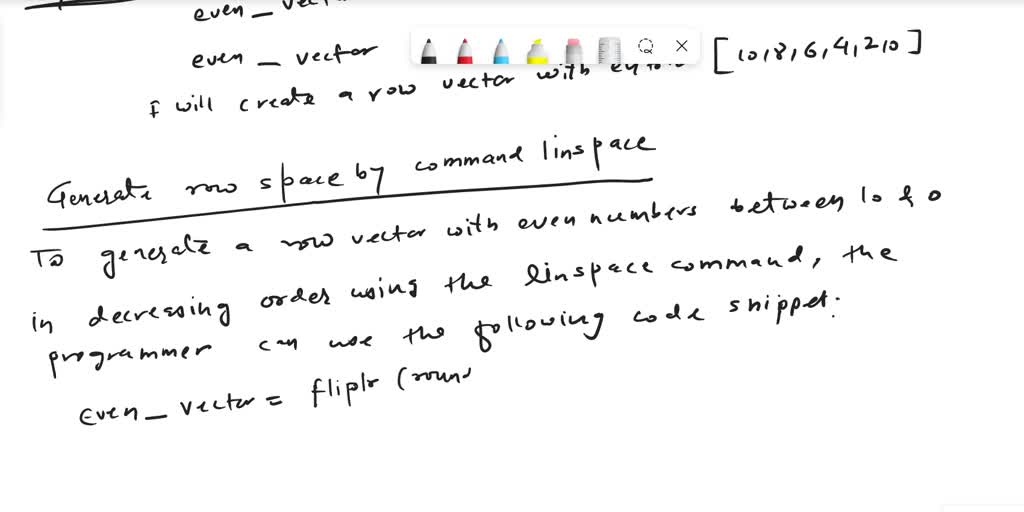 even_
even_vector
I will create a row vector with [10,8,6,4,2,0]
Generate row space by command linspace
To generate a row vector with even numbers between 10 & 0
in decreasing order using the linspace command, the
programmer can use the following code snippet:
even_vector = fliplr (roun